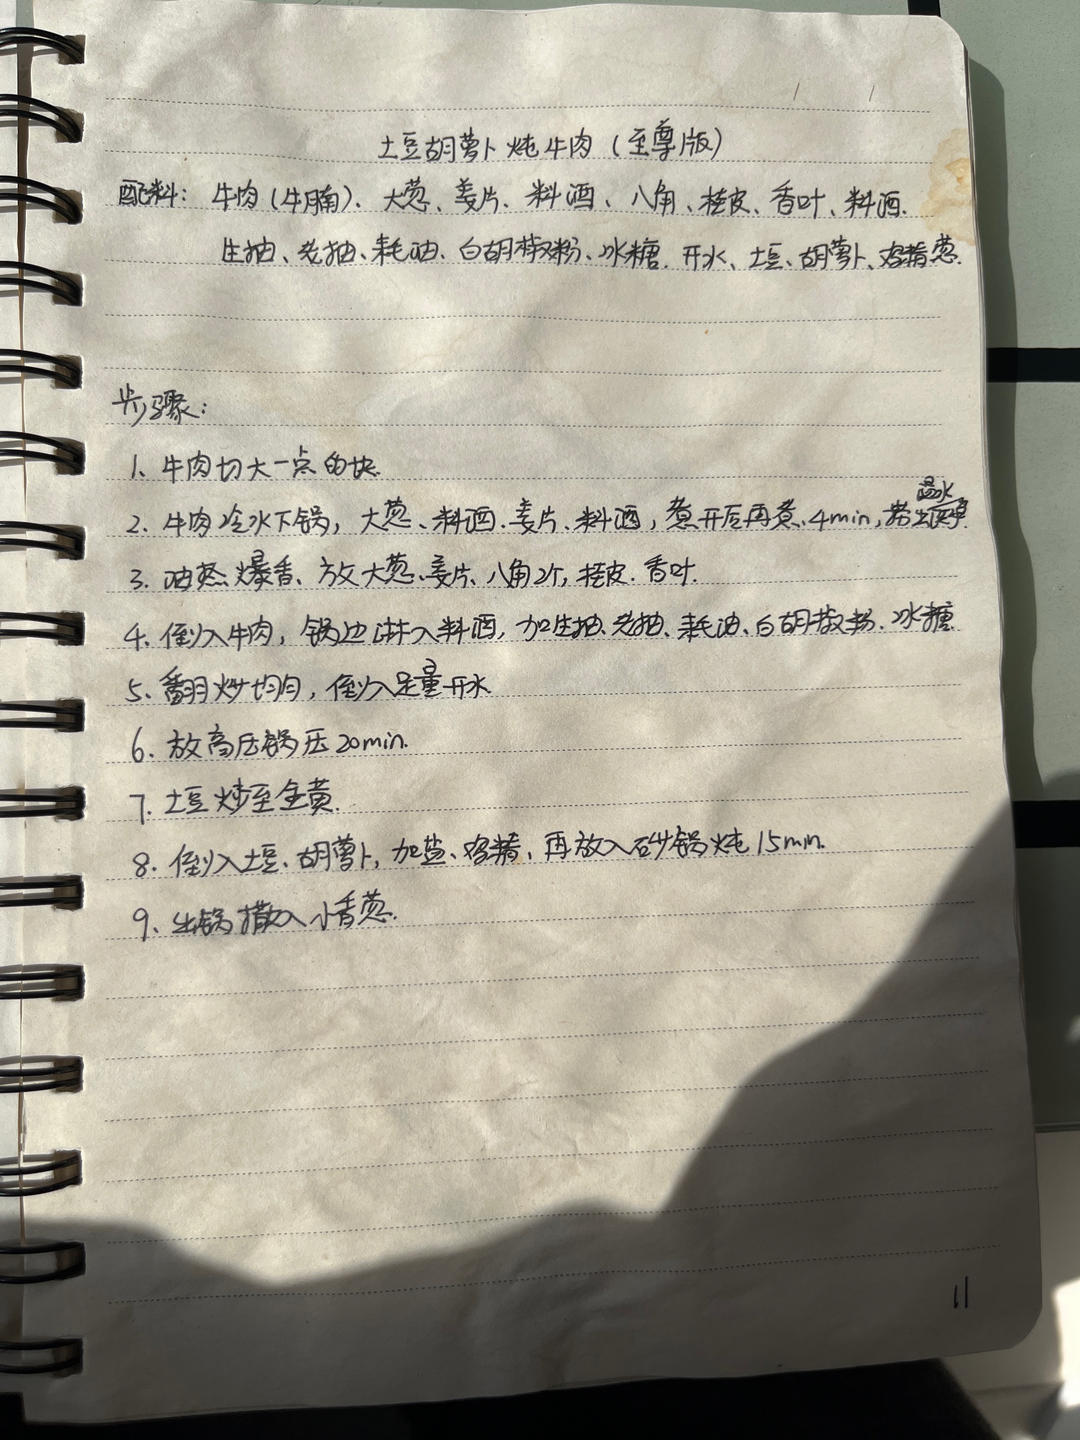 土豆胡萝卜炖牛肉（至尊版）
配料：牛肉（牛腩）、大葱、姜片、料酒、八角、桂皮、香叶、料酒、
生抽、老抽、耗油、白胡椒粉、冰糖、开水、土豆、胡萝卜、鸡精、葱.
步骤：
1、牛肉切大一点的块.
温水
2、牛肉冷水下锅，大葱、料酒、姜片、料酒，煮开后再煮、4min，捞出
3、油热爆香、放大葱、姜片、八角2个，桂皮、香叶.
4、倒入牛肉，锅边淋入料酒，加生抽、老抽、耗油、白胡椒粉、冰糖
5、翻炒均匀，倒入足量开水
6、放高压锅压20min.
7、土豆炒至金黄.
8、倒入土豆、胡萝卜，加盐、鸡精，再放入砂锅炖15min.
9、出锅撒入小香葱.
11